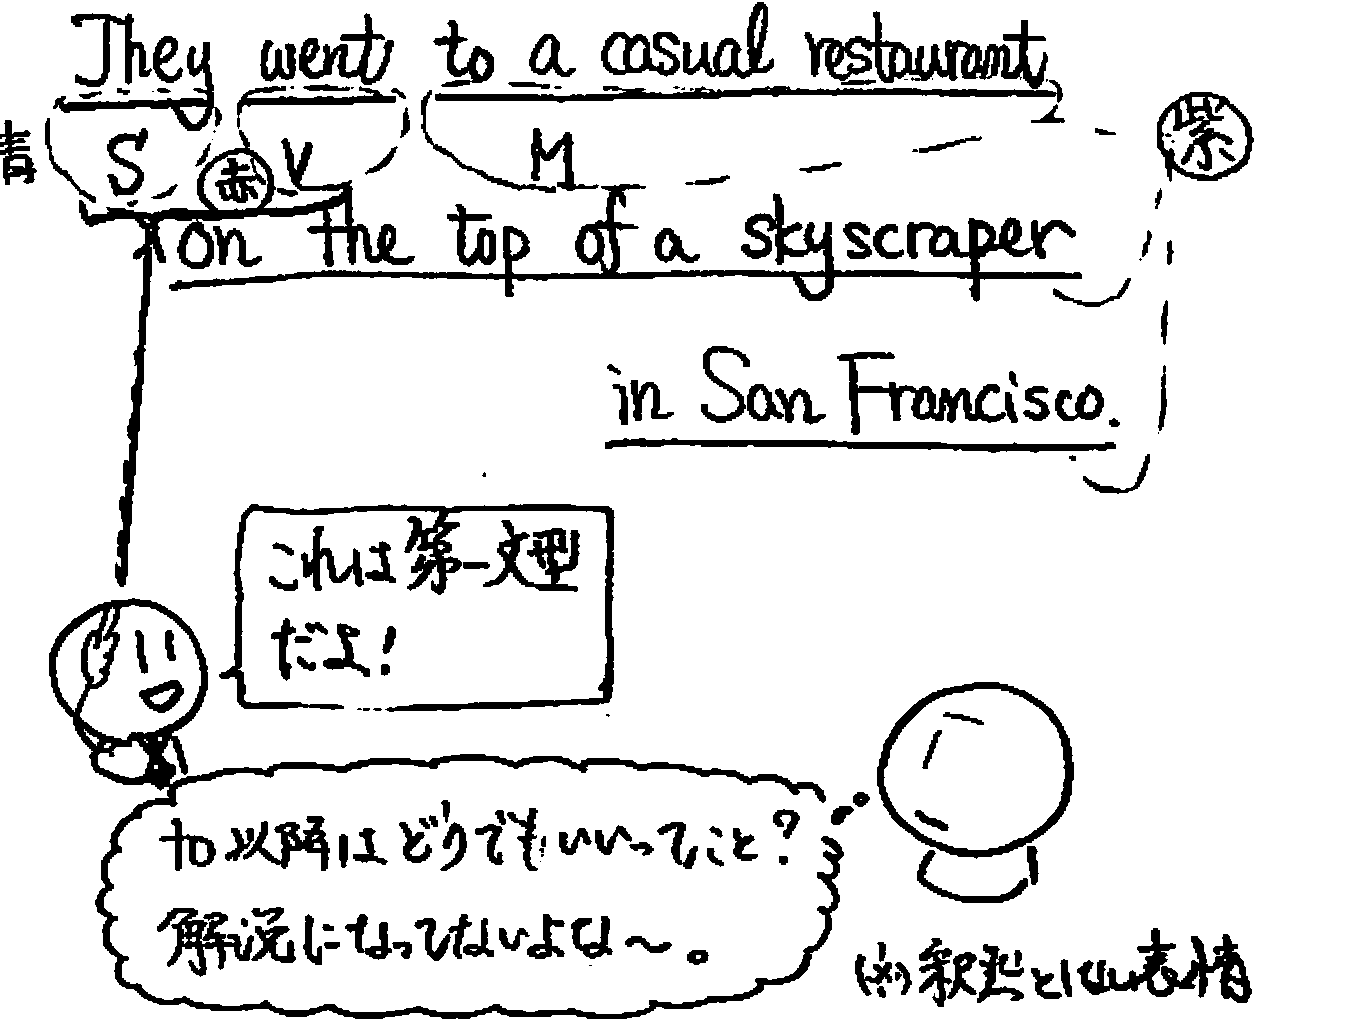 They went to a casual restaurant
青 S 赤 V M 紫
on the top of a skyscraper
in San Francisco.
これは第一文型
だよ!
to以降はどうでもいいってこと?
解説になってないよな〜。
(※)釈然としない表情